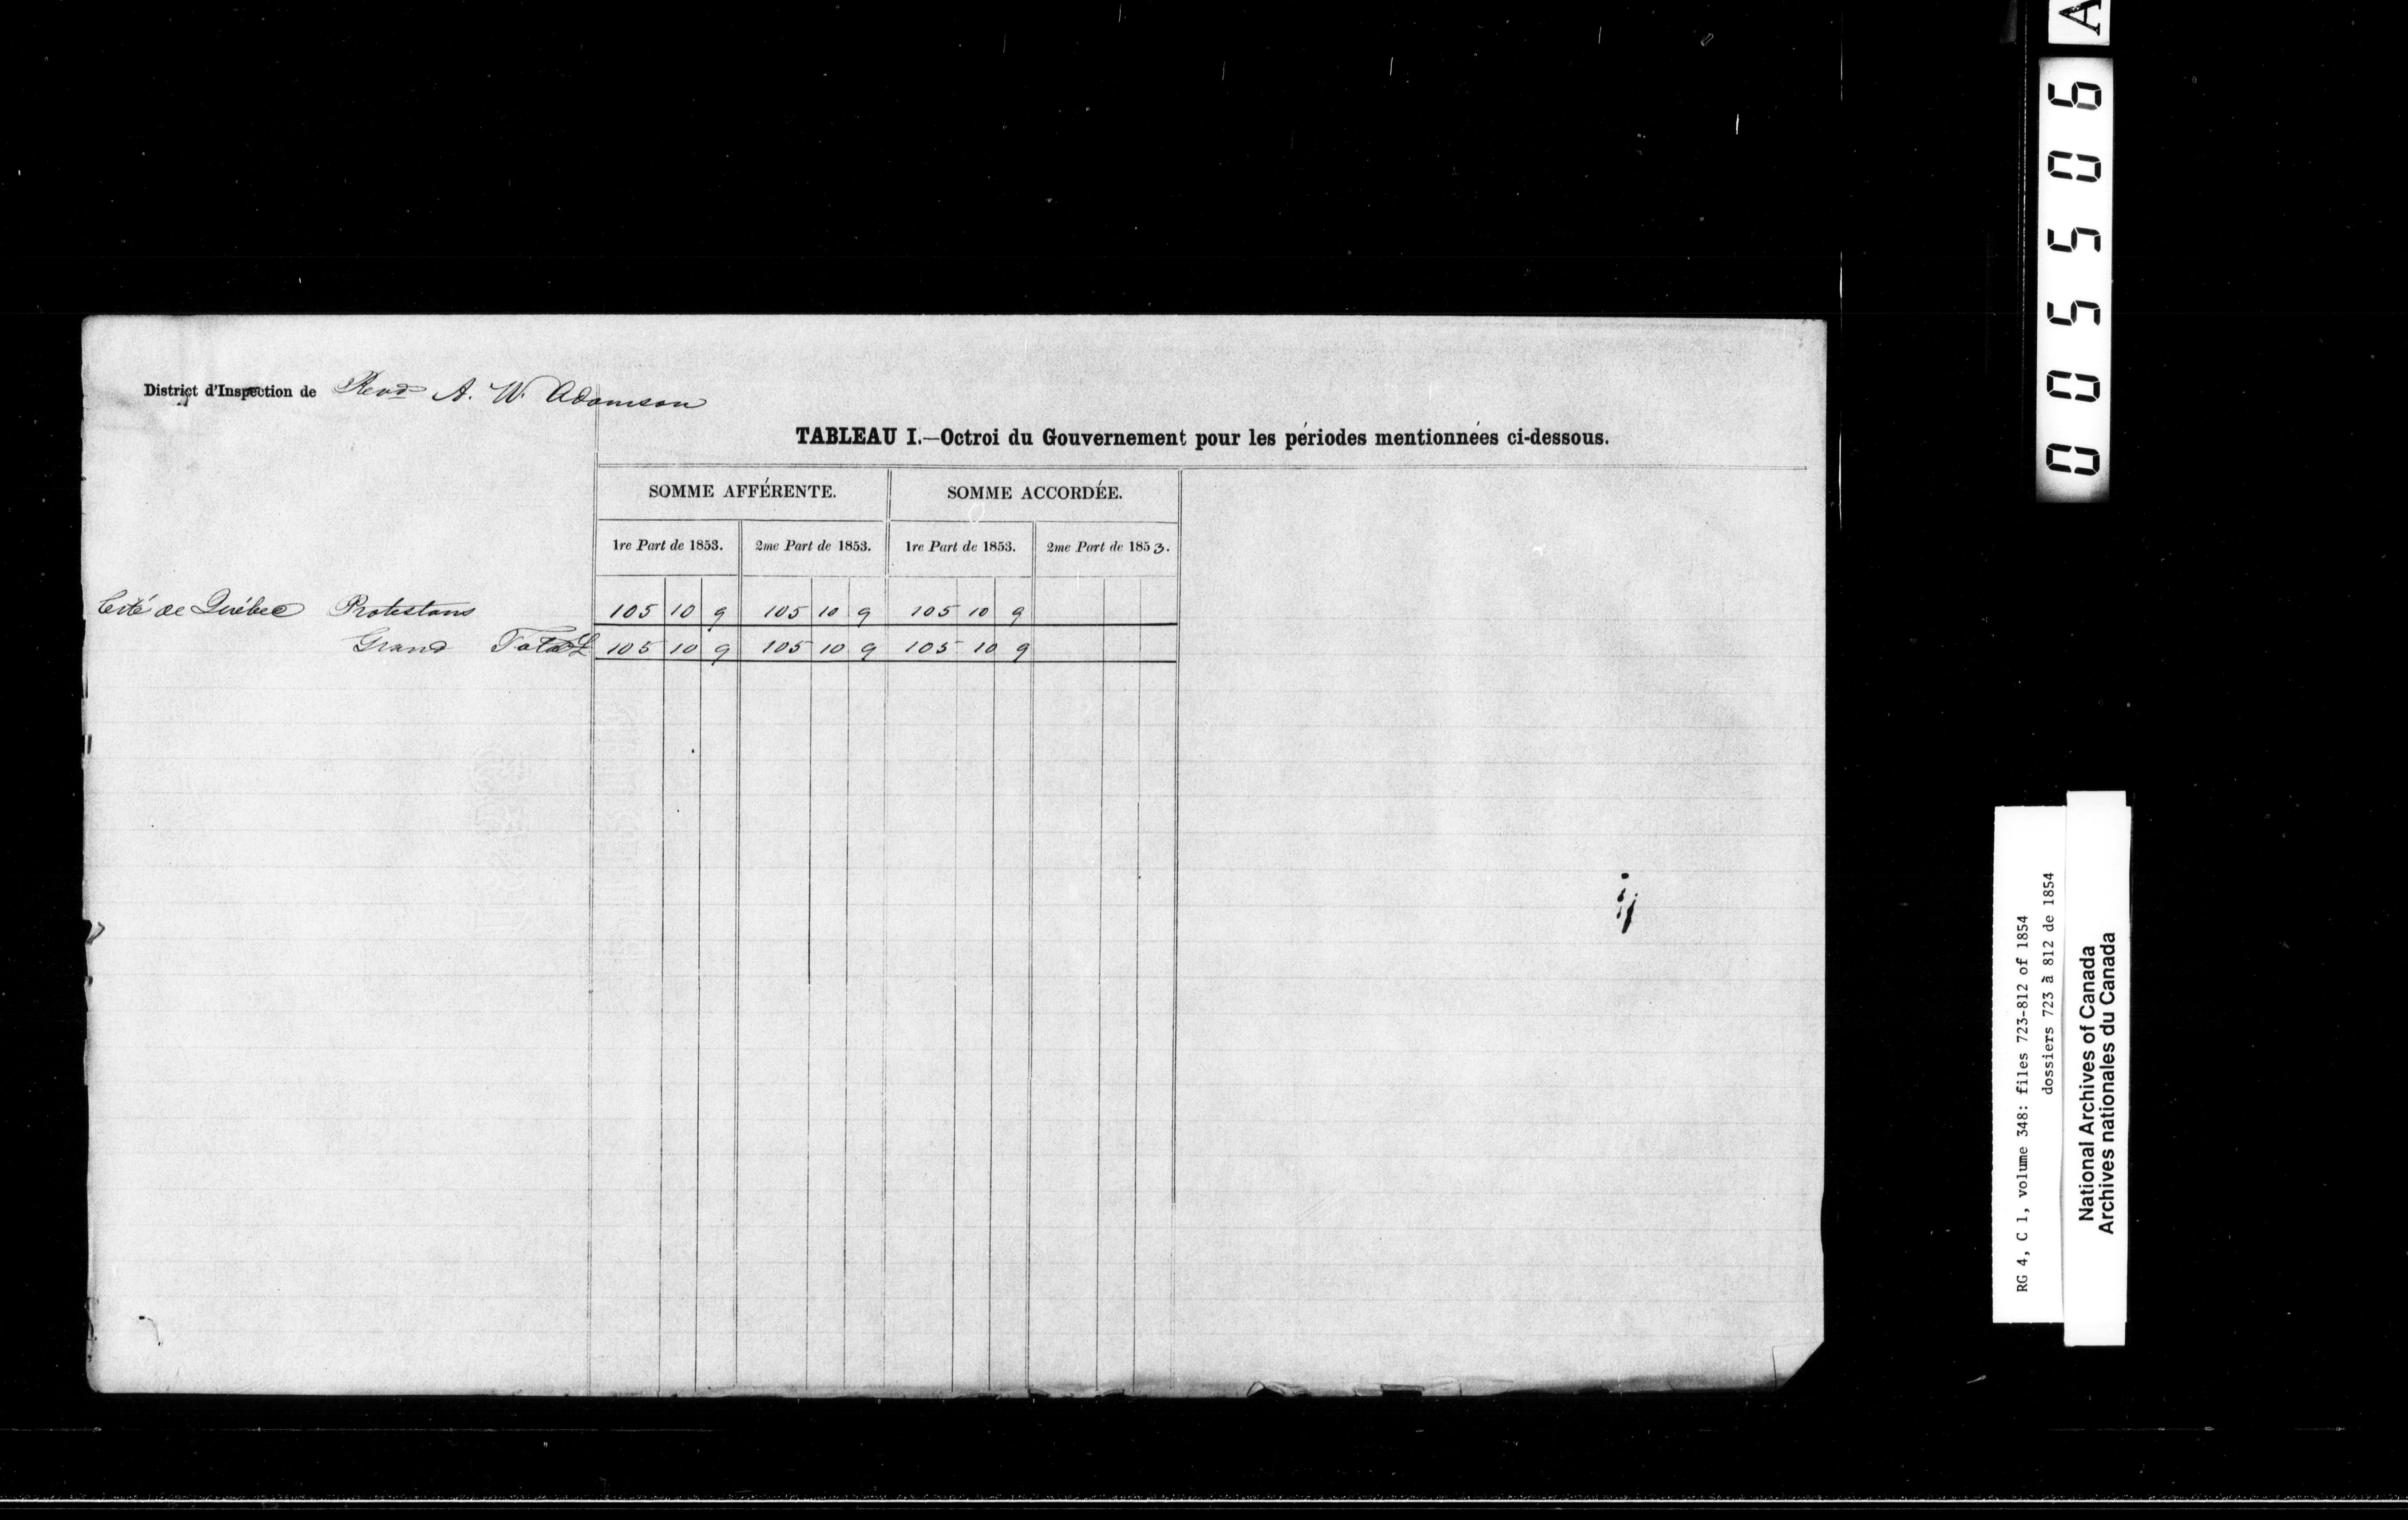 District d'Inspection de Revd A. W. Adamson
TABLEAU I.—Octroi du Gouvernement pour les périodes mentionnées ci-dessous.
SOMME AFFÉRENTE. SOMME ACCORDÉE.
1re Part de 1853. 2me Part de 1853. 1re Part de 1853. 2me Part de 1853.
Cité de Québec Protestans 105 10 9 105 10 9 105 10 9
Grand Total £ 105 10 9 105 10 9 105 10 9
005506 A
RG 4, C 1, volume 348: files 723-812 of 1854
dossiers 723 à 812 de 1854
National Archives of Canada
Archives nationales du Canada